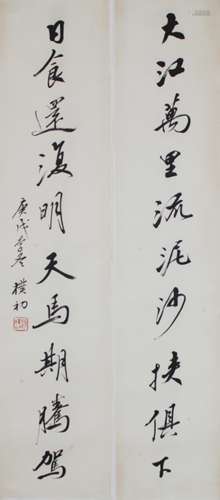 大江萬里流泥沙挾俱下
日食還復明天馬期騰駕
庚戌季冬
樸初